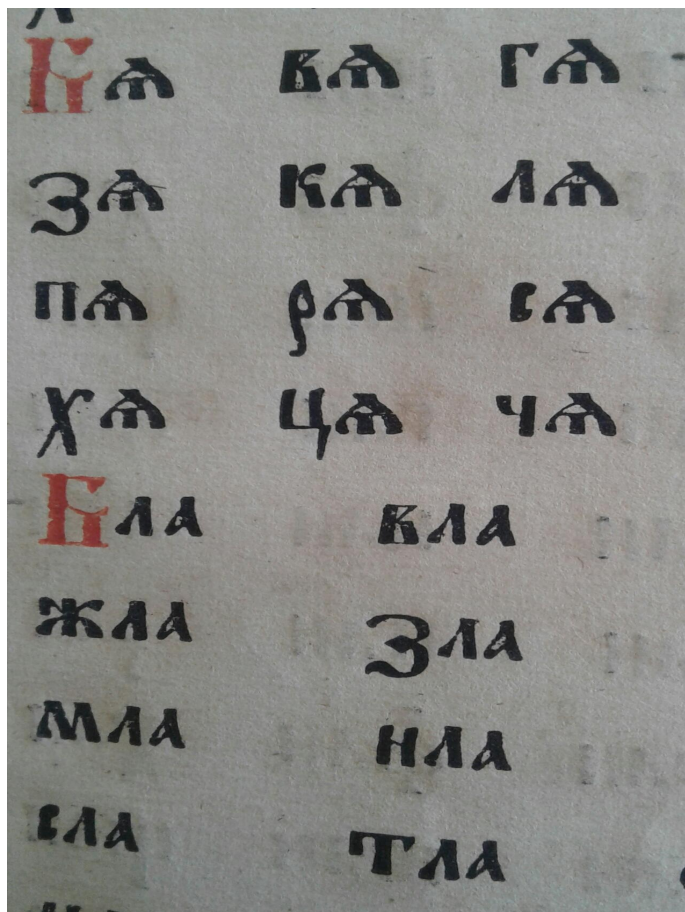 Бѧ вѧ гѧ
зѧ кѧ лѧ
пѧ рѧ сѧ
хѧ цѧ чѧ
Бла вла
жла зла
мла нла
сла тла